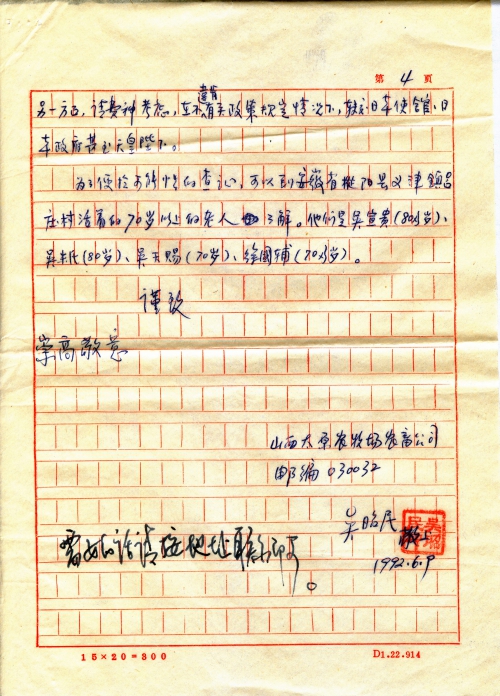 第 4 頁
违背
另一方面，请费神考虑，在不有关政策规定情况下，转交日本使馆、日
本政府甚至天皇陛下。
为了便于可能性的查证，可以到安徽省枞阳县义津镇吕
庄村活着的70岁以上的老人了解。他们是吴宣贵(80多岁)、
吴朱氏(80岁)、吴天赐(70岁)、徐国辅(70多岁)。
谨致
崇高敬意
山西太原农牧场农畜公司
邮编030032
吴昭民 敬上
1992.6.9
需要的话请按地址联系即可。
15×20=300
D1.22.914